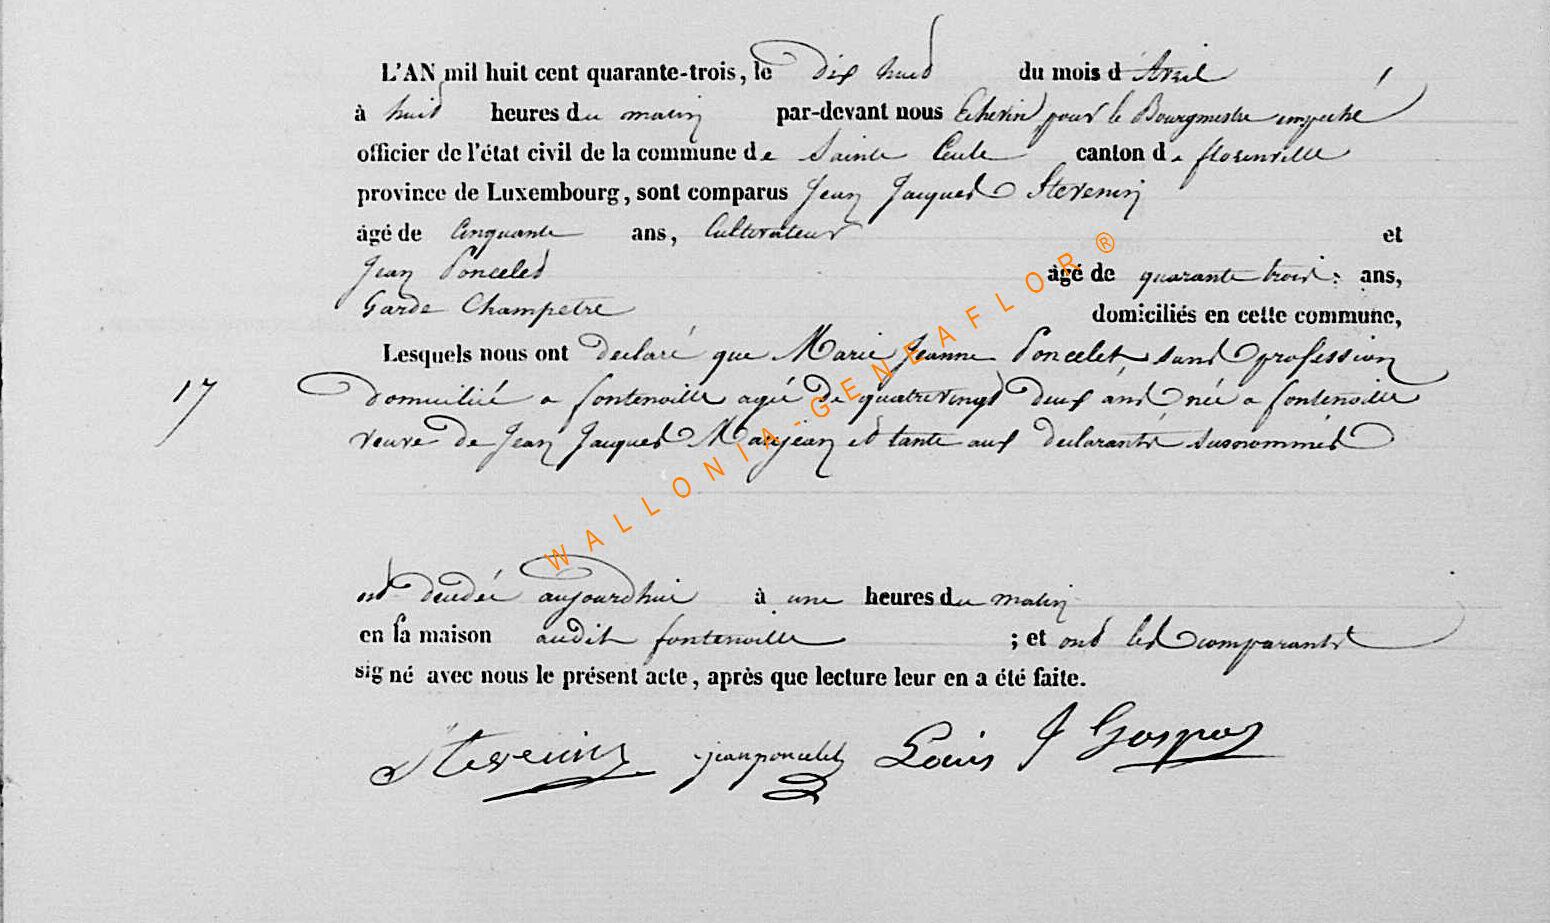 L'AN mil huit cent quarante-trois, le dix huit du mois d'Avril
à huit heures du matin par-devant nous Echevin pour le Bourgmestre empeché
officier de l'état civil de la commune de Sainte Cecile canton de florenville
province de Luxembourg, sont comparus Jean Jacques Stevenin
âgé de Cinquante ans, Cultivateur et
Jean Poncelet âgé de quarante trois ans,
Garde Champetre domiciliés en cette commune,
Lesquels nous ont declaré que Marie Jeanne Poncelet sans profession
17 domicilié a fontenoille agée de quatrevingt deux ans née a fontenoille
veuve de Jean Jacques Maujean et tante aux declarants susnommés
est decedée aujourdhui à une heures du matin
en sa maison audit fontenoille ; et ont les comparants
signé avec nous le présent acte, après que lecture leur en a été faite.
Stevenin jean poncelet Louis J Gospar
WALLONIA-GENEAFLOR®